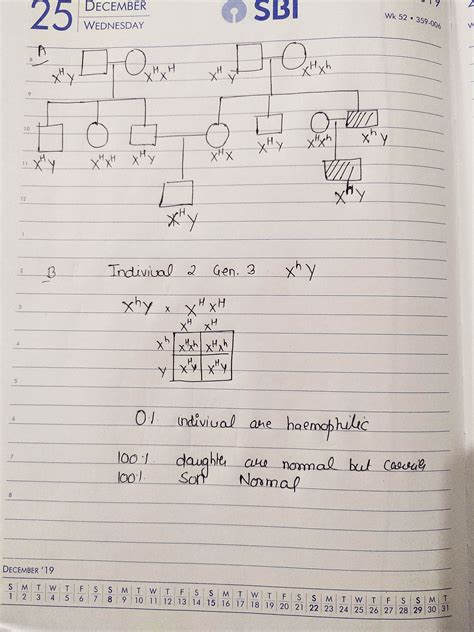 25 DECEMBER
WEDNESDAY
SBI
Wk 52 • 359-006
A
X^H Y X^H X^H X^H Y X^H X^h
X^H Y X^H X^H X^H Y X^H X X^H Y X^H X^h X^h Y
X^H Y X^h Y
B Indivival 2 Gen. 3 X^h Y
X^h Y x X^H X^H
X^H X^H
X^h X^H X^h X^H X^h
Y X^H Y X^H Y
0% indivival are haemophilic
100% daughter are normal but carrier
100% Son Normal
DECEMBER '19
S M T W T F S S M T W T F S S M T W T F S S M T W T F S S M T
1 2 3 4 5 6 7 8 9 10 11 12 13 14 15 16 17 18 19 20 21 22 23 24 25 26 27 28 29 30 31